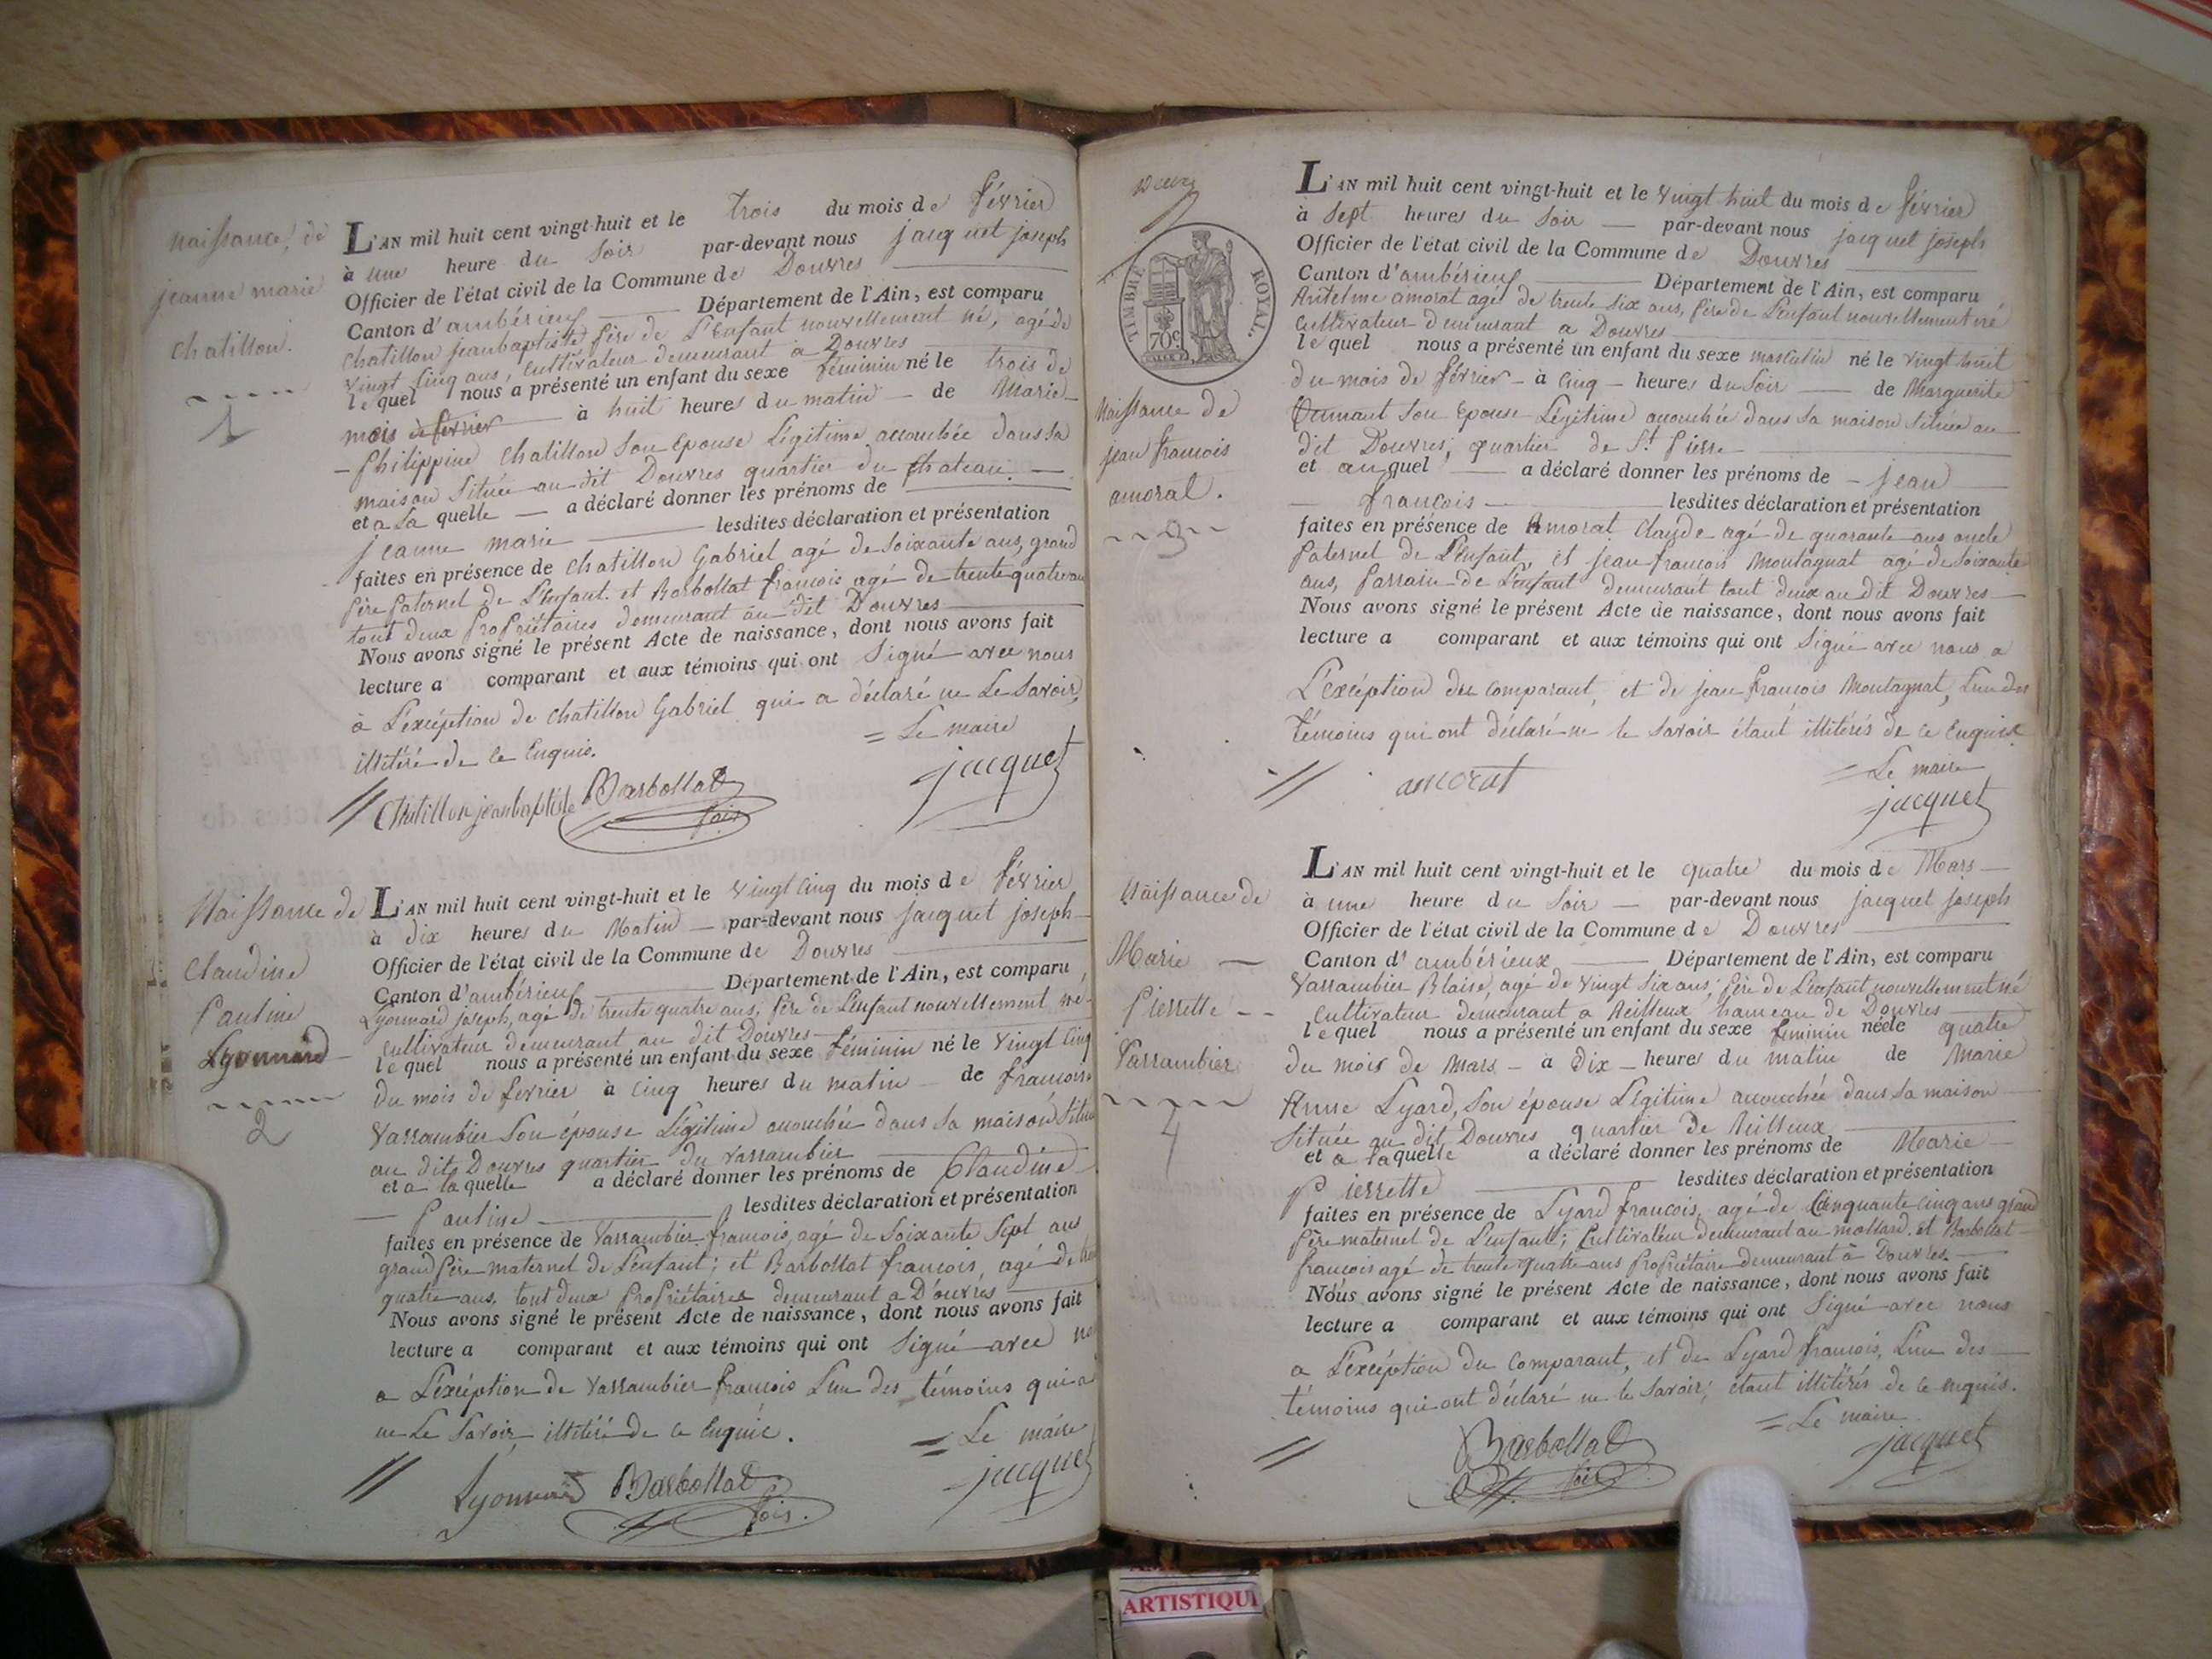 naissance, de
jeanne marie
chatillon.
1
L'AN mil huit cent vingt-huit et le trois du mois de février
à une heure du soir par-devant nous jacquet joseph
Officier de l'état civil de la Commune de Douvres
Canton d'ambérieux Département de l'Ain, est comparu
chatillon jeanbaptiste père de l'enfant nouvellement né, agé de
vingt cinq ans, cultivateur demeurant a Douvres
lequel nous a présenté un enfant du sexe féminin né le trois de
mois de février à huit heures du matin de Marie
Philippine chatillon son épouse légitime accouchée dans sa
maison située au dit Douvres quartier du chateau
et a la quelle a déclaré donner les prénoms de
jeanne marie lesdites déclaration et présentation
faites en présence de chatillon Gabriel agé de soixante ans, grand
père paternel de l'enfant. et Barbollat françois agé de trente quatre ans
tout deux propriétaires demeurant au dit Douvres
Nous avons signé le présent Acte de naissance, dont nous avons fait
lecture a comparant et aux témoins qui ont signé avec nous
à l'exception de chatillon Gabriel qui a déclaré ne le savoir,
illitéré de ce enquis.
= Le maire
Chatillon jeanbaptiste Barbollat fois jacquet
Naissance de
Claudine
Pauline
Lyonnard
2
L'AN mil huit cent vingt-huit et le vingt cinq du mois de février
à dix heures du Matin par-devant nous jacquet joseph
Officier de l'état civil de la Commune de Douvres
Canton d'ambérieux Département de l'Ain, est comparu
Lyonnard joseph, agé de trente quatre ans, père de l'enfant nouvellement né
cultivateur demeurant au dit Douvres
lequel nous a présenté un enfant du sexe féminin né le vingt cinq
du mois de fevrier à cinq heures du matin de françoise
Varrambier son épouse légitime accouchée dans sa maison située
au dit Douvres quartier du varrambier
et a la quelle a déclaré donner les prénoms de Claudine
Pauline lesdites déclaration et présentation
faites en présence de Varrambier françois, agé de soixante sept ans
grand père maternel de l'enfant; et Barbollat françois, agé de
quatre ans, tout deux propriétaires demeurant a Douvres
Nous avons signé le présent Acte de naissance, dont nous avons fait
lecture a comparant et aux témoins qui ont signé avec
a l'exception de varrambier françois l'un des témoins qui a
ne le savoir illitéré de ce enquis.
= Le maire
Lyonnard Barbollat fois. jacquet
TIMBRE ROYAL.
70c
Naissance de
jean francois
amorat.
3
L'AN mil huit cent vingt-huit et le vingt huit du mois de février
à sept heures du soir par-devant nous jacquet joseph
Officier de l'état civil de la Commune de Douvres
Canton d'ambérieux Département de l'Ain, est comparu
Antelme amorat agé de trente six ans, père de l'enfant nouvellement né
cultivateur demeurant a Douvres
lequel nous a présenté un enfant du sexe masculin né le vingt huit
du mois de février à cinq heures du soir de Marguerite
son épouse légitime accouchée dans sa maison située au
dit Douvres, quartier de St. Pierre
et auquel a déclaré donner les prénoms de jean
françois lesdites déclaration et présentation
faites en présence de Amorat Claude agé de quarante ans oncle
paternel de l'enfant, et jean françois Montagnat agé de soixante
ans, parrain de l'enfant demeurant tout deux au dit Douvres
Nous avons signé le présent Acte de naissance, dont nous avons fait
lecture a comparant et aux témoins qui ont signé avec nous a
l'exception du comparant, et de jean françois Montagnat, l'un des
témoins qui ont déclaré ne le savoir étant illitérés de ce enquis
= Le maire
amorat jacquet
Naissance de
Marie
Pierrette
Varrambier
4
L'AN mil huit cent vingt-huit et le quatre du mois de Mars
à une heure du soir par-devant nous jacquet joseph
Officier de l'état civil de la Commune de Douvres
Canton d'ambérieux Département de l'Ain, est comparu
Varrambier Blaise, agé de vingt six ans, père de l'enfant nouvellement né
cultivateur demeurant a hameau de Douvres
lequel nous a présenté un enfant du sexe feminin néele quatre
du mois de Mars à dix heures du matin de Marie
Anne Lyard, son épouse légitime accouchée dans sa maison
située au dit Douvres quartier de
et a laquelle a déclaré donner les prénoms de Marie
Pierrette lesdites déclaration et présentation
faites en présence de Lyard françois, agé de Cinquante cinq ans grand
père maternel de l'enfant; Cultivateur demeurant au mollard. et Barbollat
françois agé de trente quatre ans propriétaire demeurant à Douvres.
Nous avons signé le présent Acte de naissance, dont nous avons fait
lecture a comparant et aux témoins qui ont signé avec nous
a l'exception du comparant, et de Lyard françois, l'un des
témoins qui ont déclaré ne le savoir; étant illitérés de ce enquis.
= Le maire
Barbollat fois jacquet
ARTISTIQU